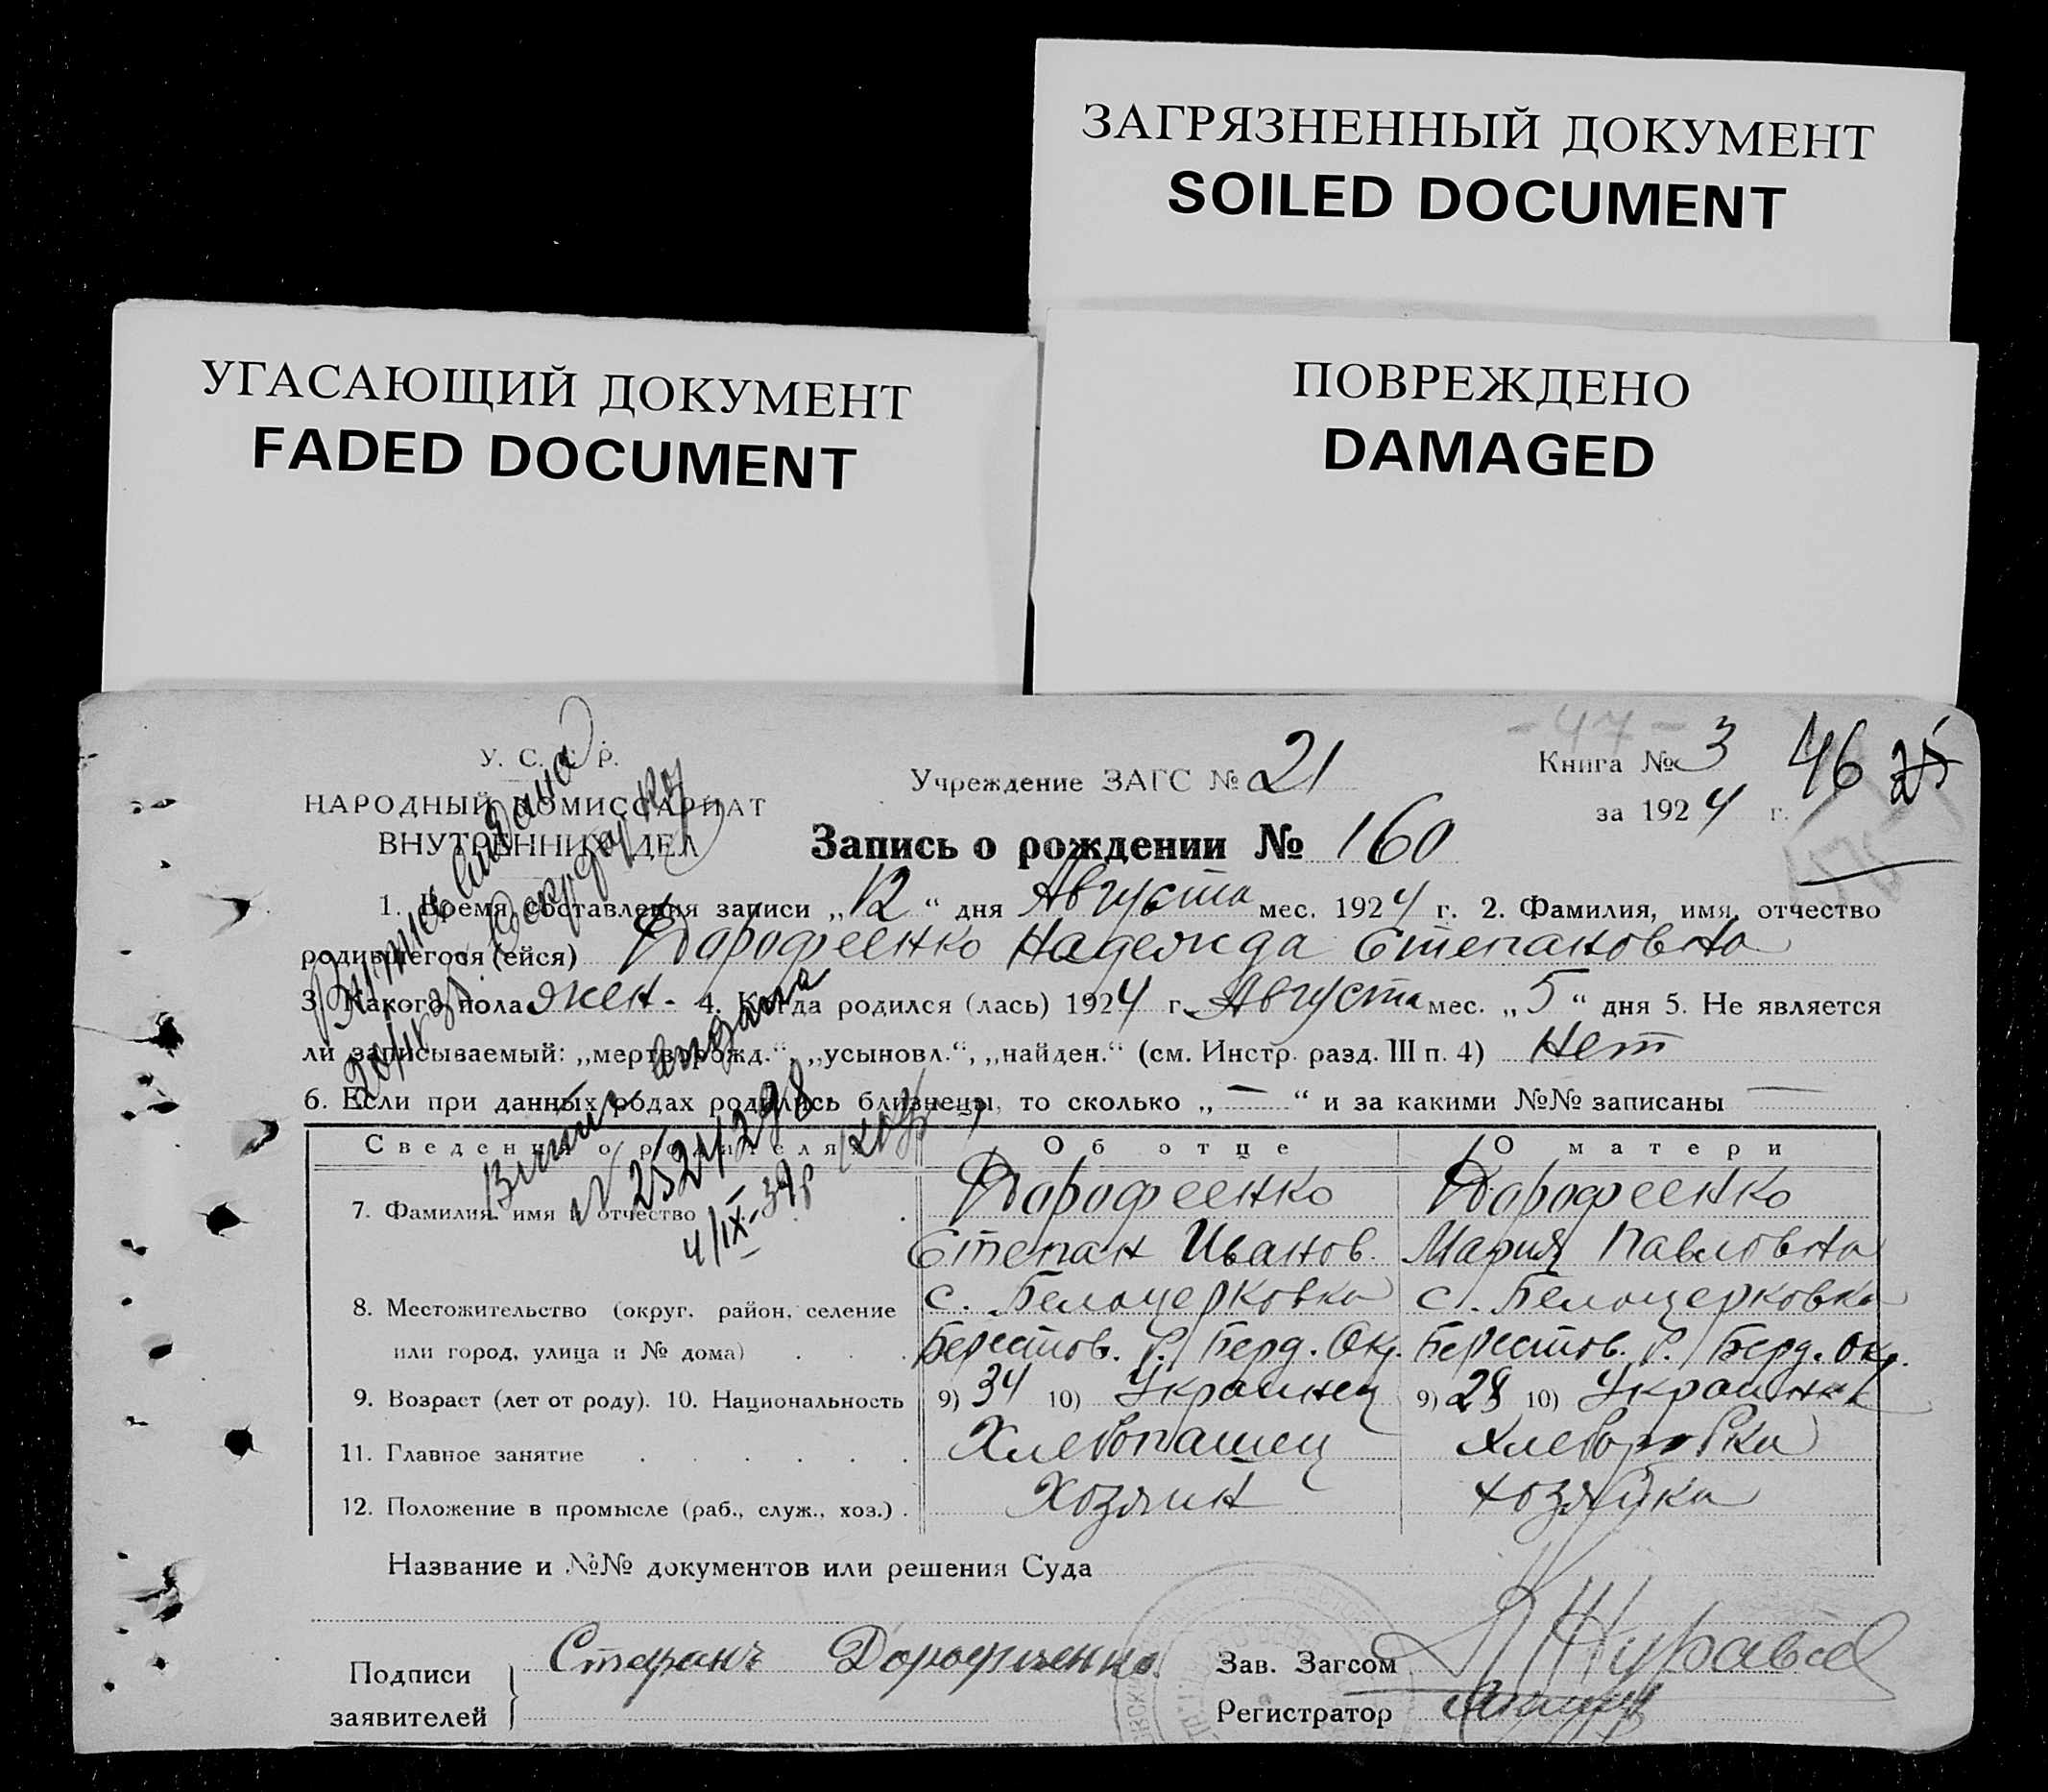 ЗАГРЯЗНЕННЫЙ ДОКУМЕНТ
SOILED DOCUMENT
УГАСАЮЩИЙ ДОКУМЕНТ
FADED DOCUMENT
ПОВРЕЖДЕНО
DAMAGED
- 47 -
У. С. С. Р.
НАРОДНЫЙ КОМИССАРИАТ
ВНУТРЕННИХ ДЕЛ
Учреждение ЗАГС № 21
Книга № 3 46 25
за 1924 г.
Запись о рождении № 160
1. Время составления записи „12“ дня Августа мес. 1924 г. 2. Фамилия, имя, отчество
родившегося (ейся) Дорофеенко Надежда Степановна
3. Какого пола жен. 4. Когда родился (лась) 1924 г. Августа мес. „5“ дня 5. Не является
ли записываемый: „мертворожд.“, „усыновл.“, „найден.“ (см. Инстр. разд. III п. 4) Нет
6. Если при данных родах родились близнецы, то сколько „—“ и за какими №№ записаны —
Сведения о родителях Об отце О матери
7. Фамилия, имя и отчество Дорофеенко Дорофеенко
Степан Иванов. Мария Павловна
8. Местожительство (округ, район, селение с. Белоцерковка с. Белоцерковка
или город, улица и № дома) Берестов. Р. Берд. Окр. Берестов. Р. Берд. Окр.
9. Возраст (лет от роду). 10. Национальность 9) 34 10) Украинец 9) 28 10) Украинка
11. Главное занятие Хлебопашец Хлеборобка
12. Положение в промысле (раб., служ., хоз.) Хозяин хозяйка
Название и №№ документов или решения Суда
Подписи заявителей Стефанъ Дорофиенко
Зав. Загсом
Регистратор
выдана
N 2521298
4/IX-34р